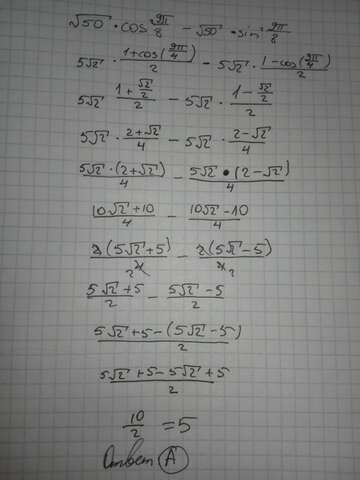 √50 · cos² 9π/8 − √50 · sin² 9π/8
5√2 · (1+cos(9π/4))/2 − 5√2 · (1−cos(9π/4))/2
5√2 · (1+√2/2)/2 − 5√2 · (1−√2/2)/2
5√2 · (2+√2)/4 − 5√2 · (2−√2)/4
5√2 · (2+√2)/4 − 5√2 · (2−√2)/4
(10√2+10)/4 − (10√2−10)/4
2(5√2+5)/4 2 − 2(5√2−5)/4 2
(5√2+5)/2 − (5√2−5)/2
(5√2+5−(5√2−5))/2
(5√2+5−5√2+5)/2
10/2 =5
Ответ A